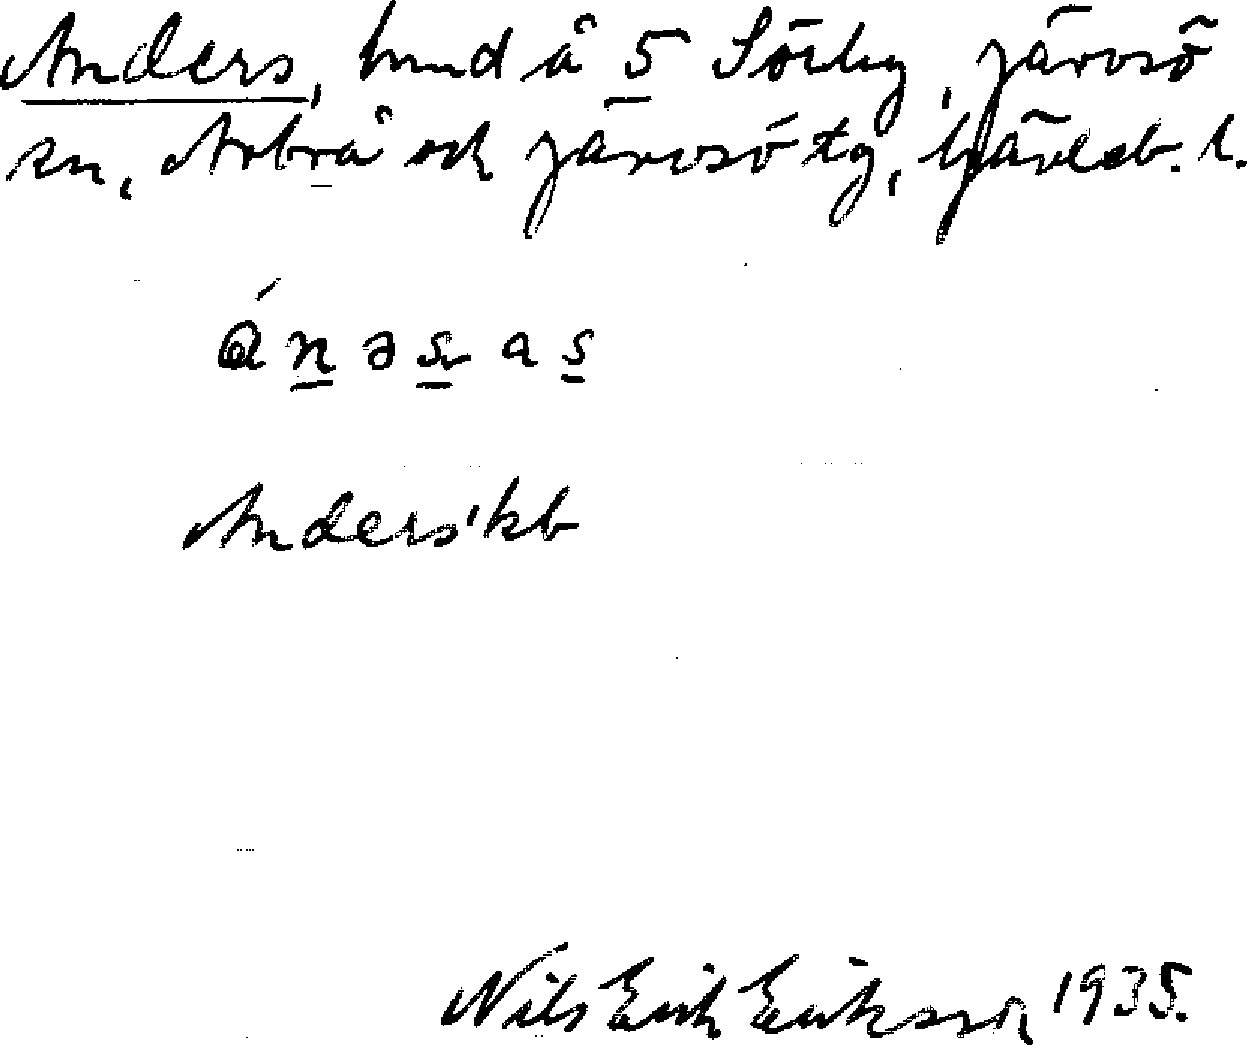 Anders, hmd å 5 Sörby, Järvsö
sn, Arbrå och Järvsö tg, Gävleb. l.
ánəsas
Anders' kb
Nils Erik Eriksson 1935.